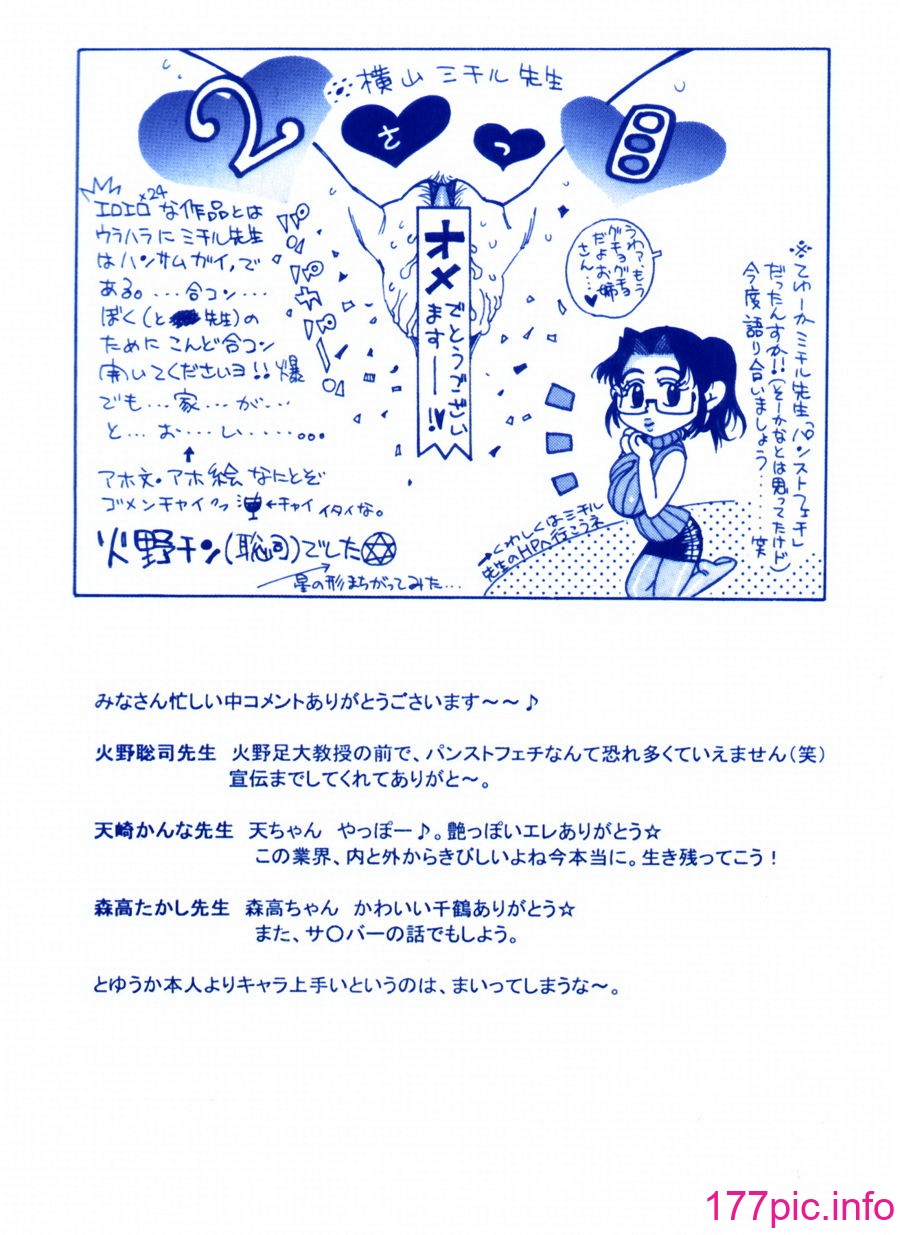 横山ミチル先生
2
さ
つ
目
エロエロ×24な作品とは
ウラハラにミチル先生
はハンサムガイ,で
ある。...合コン...
ぼく(と 先生)の
ためにこんど合コン
(再)いてくださいヨ!!爆
でも...家...が...
と...お...し.....。。。
アホ文・アホ絵なにとぞ
ゴメンチャイクっ ←チャイ イタイな。
火野チン(聡司)でした
星の形まちがってみた...
パパーン
パサパパー。
オメ
でとうござい
ます――!!
うわ〜、もう
グチョグチョ
だよお姉
さん...♥
※てゆーかミチル先生「パンストフェチ」
だったんすか!!(そーかなとは思ってたけド)
今度語り合いましょう....笑
→くわしくはミチル
先生のHPへ行こうネ
みなさん忙しい中コメントありがとうございます〜〜♪
火野聡司先生 火野足大教授の前で、パンストフェチなんて恐れ多くていえません(笑)
宣伝までしてくれてありがと〜。
天崎かんな先生 天ちゃん やっぽー♪。艶っぽいエレありがとう☆
この業界、内と外からきびしいよね今本当に。生き残ってこう!
森高たかし先生 森高ちゃん かわいい千鶴ありがとう☆
また、サ〇バーの話でもしよう。
とゆうか本人よりキャラ上手いというのは、まいってしまうな〜。
177pic.info